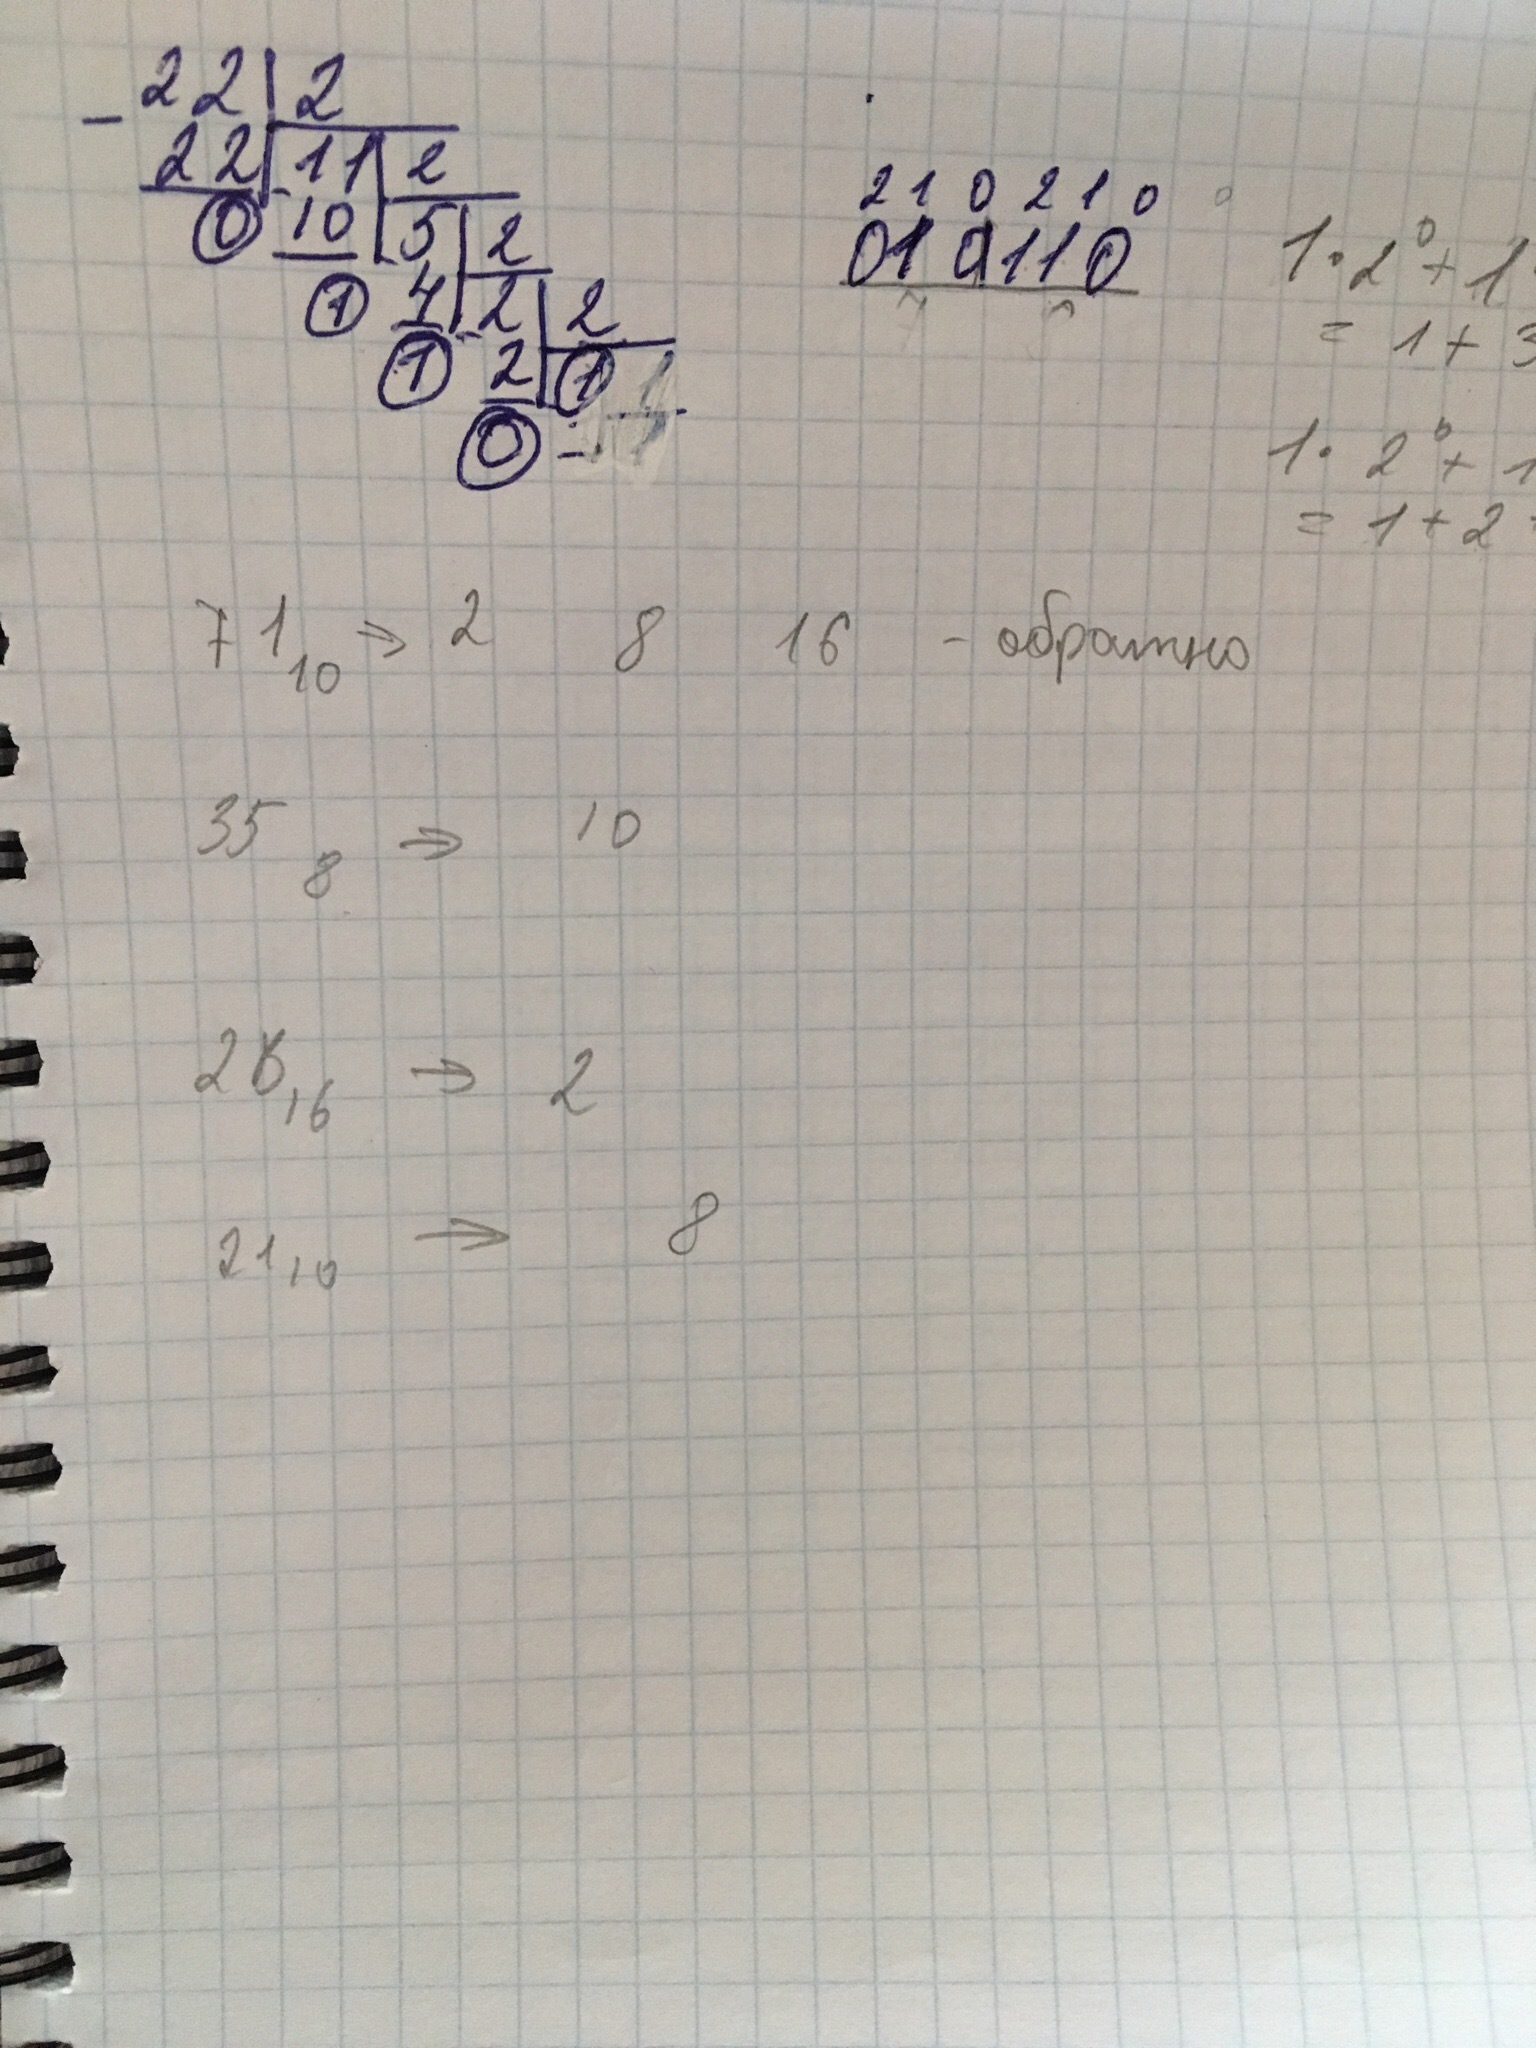 - 22 2
22 11 2
0 - 10 - 5 2
1 4 - 2 2
1 2 1 1
0 -
2 1 0 2 1 0 0
010110
1 · 2⁰ + 1
= 1 + 3
1 · 2⁰ + 1
= 1 + 2 +
71₁₀ → 2 8 16 - обратно
35₈ → 10
2B₁₆ → 2
21₁₀ → 8